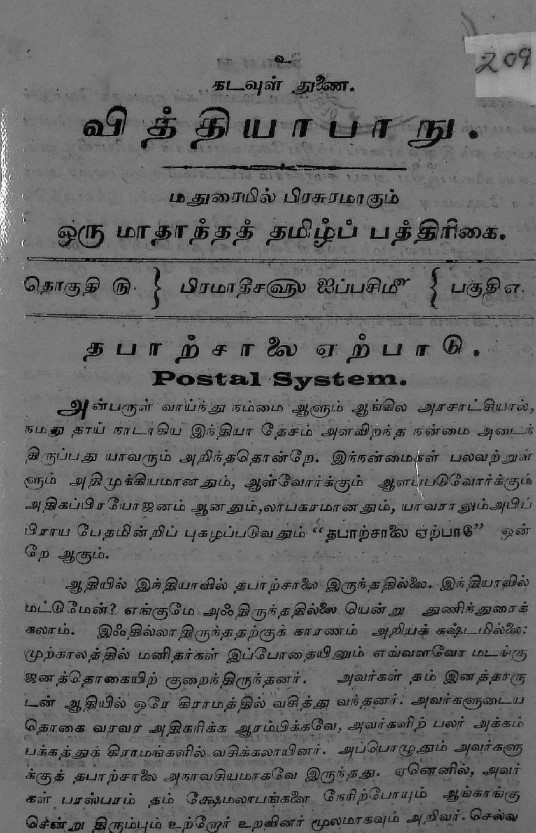 உ
209
கடவுள் துணை.
வித்தியாபாநு.
மதுரையில் பிரசுரமாகும்
ஒரு மாதாந்தத் தமிழ்ப் பத்திரிகை.
தொகுதி ௫. } பிரமாதீச௵ ஐப்பசி௴ { பகுதி ௭.
தபாற்சாலை ஏற்பாடு.
Postal System.
அன்பருள் வாய்ந்து நம்மை ஆளும் ஆங்கில அரசாட்சியால்,
நமது தாய் நாடாகிய இந்தியா தேசம் அளவிறந்த நன்மை அடைந்
திருப்பது யாவரும் அறிந்ததொன்றே. இந்நன்மைகள் பலவற்றுள்
ளும் அதிமுக்கியமானதும், ஆள்வோர்க்கும் ஆளப்படுவோர்க்கும்
அதிகப்பிரயோஜனம் ஆனதும்,லாபகரமானதும், யாவராலும்அபிப்
பிராய பேதமின்றிப் புகழப்படுவதும் “தபாற்சாலை ஏற்பாடு” ஒன்
றே ஆகும்.
ஆதியில் இந்தியாவில் தபாற்சாலை இருந்ததில்லை. இந்தியாவில்
மட்டுமேன்? எங்குமே அஃதிருந்ததில்லை யென்று துணிந்துரைக்
கலாம். இஃதில்லாதிருந்ததற்குக் காரணம் அறியக் கஷ்டமில்லை:
முற்காலத்தில் மனிதர்கள் இப்போதையினும் எவ்வளவோ மடங்கு
ஜனத்தொகையிற் குறைந்திருந்தனர். அவர்கள் தம் இனத்தாரு
டன் ஆதியில் ஒரே கிராமத்தில் வசித்து வந்தனர். அவர்களுடைய
தொகை வரவர அதிகரிக்க ஆரம்பிக்கவே, அவர்களிற் பலர் அக்கம்
பக்கத்துக் கிராமங்களில் வசிக்கலாயினர். அப்பொழுதும் அவர்களு
க்குத் தபாற்சாலை அநாவசியமாகவே இருந்தது. ஏனெனில், அவர்
கள் பரஸ்பரம் தம் க்ஷேமலாபங்களை நேரிற்போயும் ஆங்காங்கு
சென்று திரும்பும் உற்றோர் உறவினர் மூலமாகவும் அறிவர். செல்வ